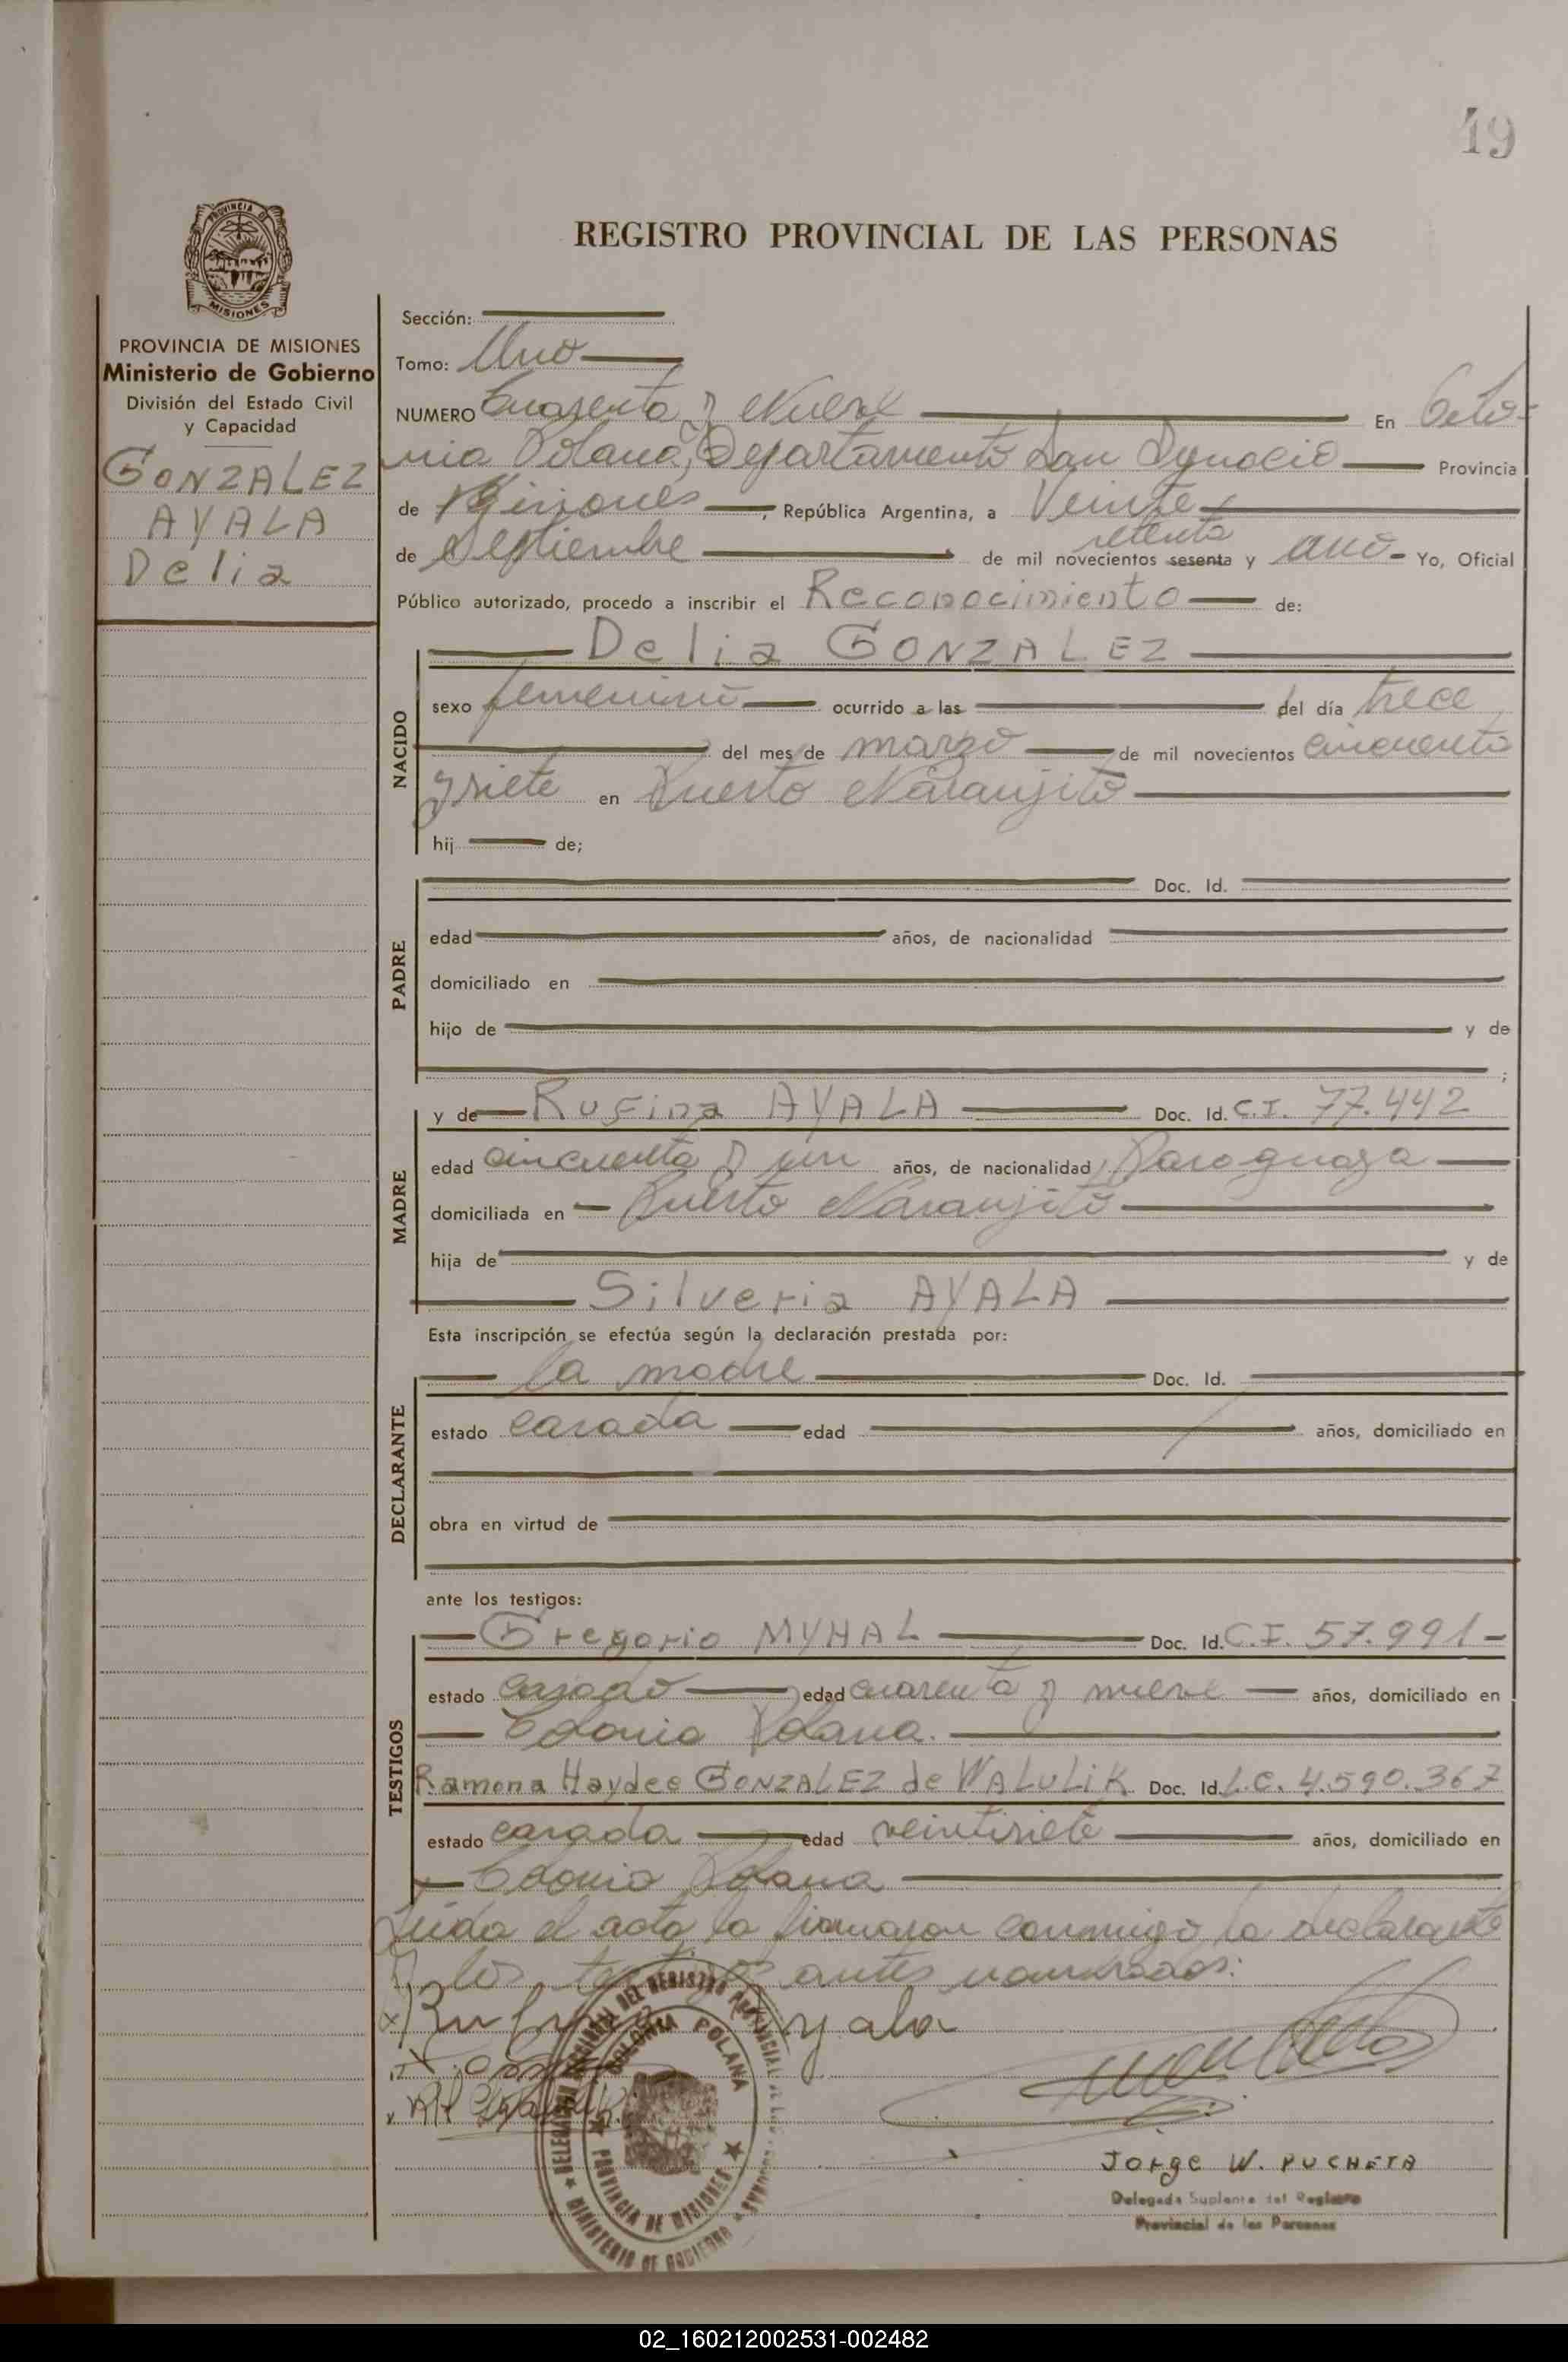 49
REGISTRO PROVINCIAL DE LAS PERSONAS
PROVINCIA DE MISIONES
PROVINCIA DE MISIONES
Ministerio de Gobierno
División del Estado Civil
y Capacidad
GONZALEZ
AYALA
Delia
Sección:
Tomo: Uno
NUMERO Cuarenta y Nueve En Colo-
nia Polana, Departamento San Ignacio Provincia
de Misiones, República Argentina, a Veinte
setenta
de Septiembre de mil novecientos sesenta y uno- Yo, Oficial
Público autorizado, procedo a inscribir el Reconocimiento de:
Delia GONZALEZ
NACIDO
sexo femenino ocurrido a las del día trece
del mes de marzo de mil novecientos cincuenta
y siete en Puerto Naranjito
hij de;
PADRE
Doc. Id.
edad años, de nacionalidad
domiciliado en
hijo de y de
;
MADRE
y de Rufina AYALA Doc. Id. C.I. 77.442
edad cincuenta y un años, de nacionalidad Paraguaya
domiciliada en Puerto Naranjito
hija de y de
Silveria AYALA
Esta inscripción se efectúa según la declaración prestada por:
DECLARANTE
la madre Doc. Id.
estado casada edad años, domiciliado en
obra en virtud de
ante los testigos:
TESTIGOS
Gregorio MYHAL Doc. Id. C.I. 57.991-
estado casado edad cuarenta y nueve años, domiciliado en
Colonia Polana.
Ramona Haydee GONZALEZ de WALULIK Doc. Id. L.C. 4.590.367
estado casada edad veintisiete años, domiciliado en
Colonia Polana
Leída el acta, la firmaron conmigo la declarante
y los testigos antes nombrados:
Rufina Ayala
DELEGACION SECCIONAL DEL REGISTRO PROVINCIAL DE LAS PERSONAS
MINISTERIO DE GOBIERNO
COLONIA POLANA
PROVINCIA DE MISIONES
Jorge W. PUCHETA
Delegado Suplente del Registro
Provincial de las Personas
02_160212002531-002482